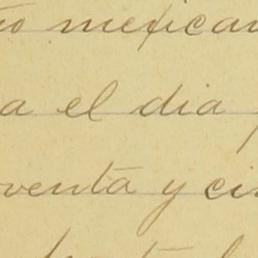 mexican
a el dia
venta y ci